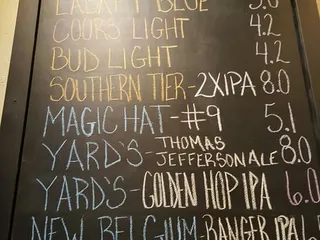 LABATT BLUE 5.0
COORS LIGHT 4.2
BUD LIGHT 4.2
SOUTHERN TIER-2XIPA 8.0
MAGIC HAT-#9 5.1
YARD'S-THOMAS JEFFERSON ALE 8.0
YARD'S-GOLDEN HOP IPA 6.0
NEW BELGIUM-RANGER IPA